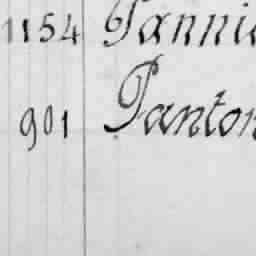 1154 Pannie
901 Panton